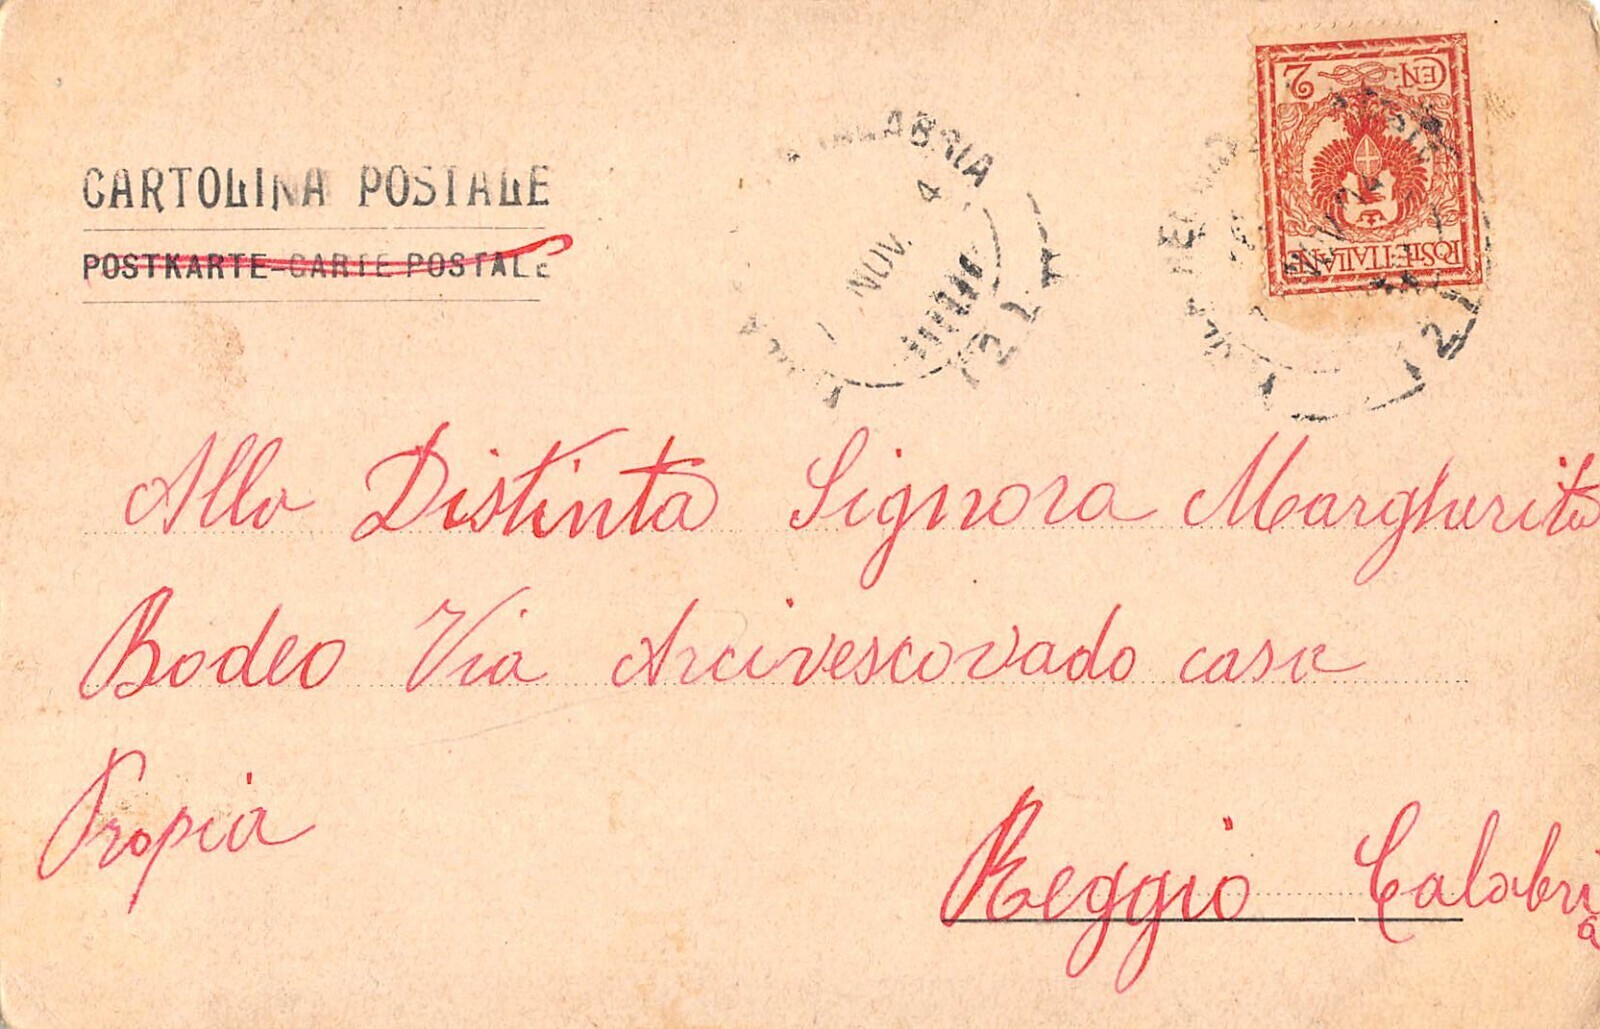 CARTOLINA POSTALE
POSTKARTE-CARTE POSTALE
CEN. 2
POSTE ITALIANE
CALABRIA
NOV. 4
12 L
12
Alla Distinta Signora Margherita
Bodeo Via Arcivescovado casa
Propia
Reggio Calabria